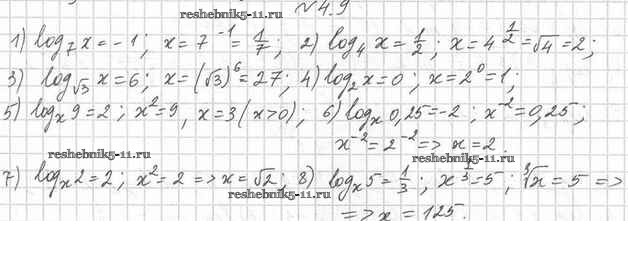 reshebnik5-11.ru №4.9
1) log₇x = -1; x = 7⁻¹ = 1/7; 2) log₄x = 1/2; x = 4^(1/2) = √4 = 2;
3) log_√3 x = 6; x = (√3)⁶ = 27; 4) log₂x = 0; x = 2⁰ = 1;
5) logₓ9 = 2; x² = 9, x = 3 (x>0); 6) logₓ0,25 = -2; x⁻² = 0,25;
x⁻² = 2⁻² => x = 2.
reshebnik5-11.ru reshebnik5-11.ru
7) logₓ2 = 2; x² = 2 => x = √2; 8) logₓ5 = 1/3; x^(1/3) = 5; ∛x = 5 =>
reshebnik5-11.ru
=> x = 125.